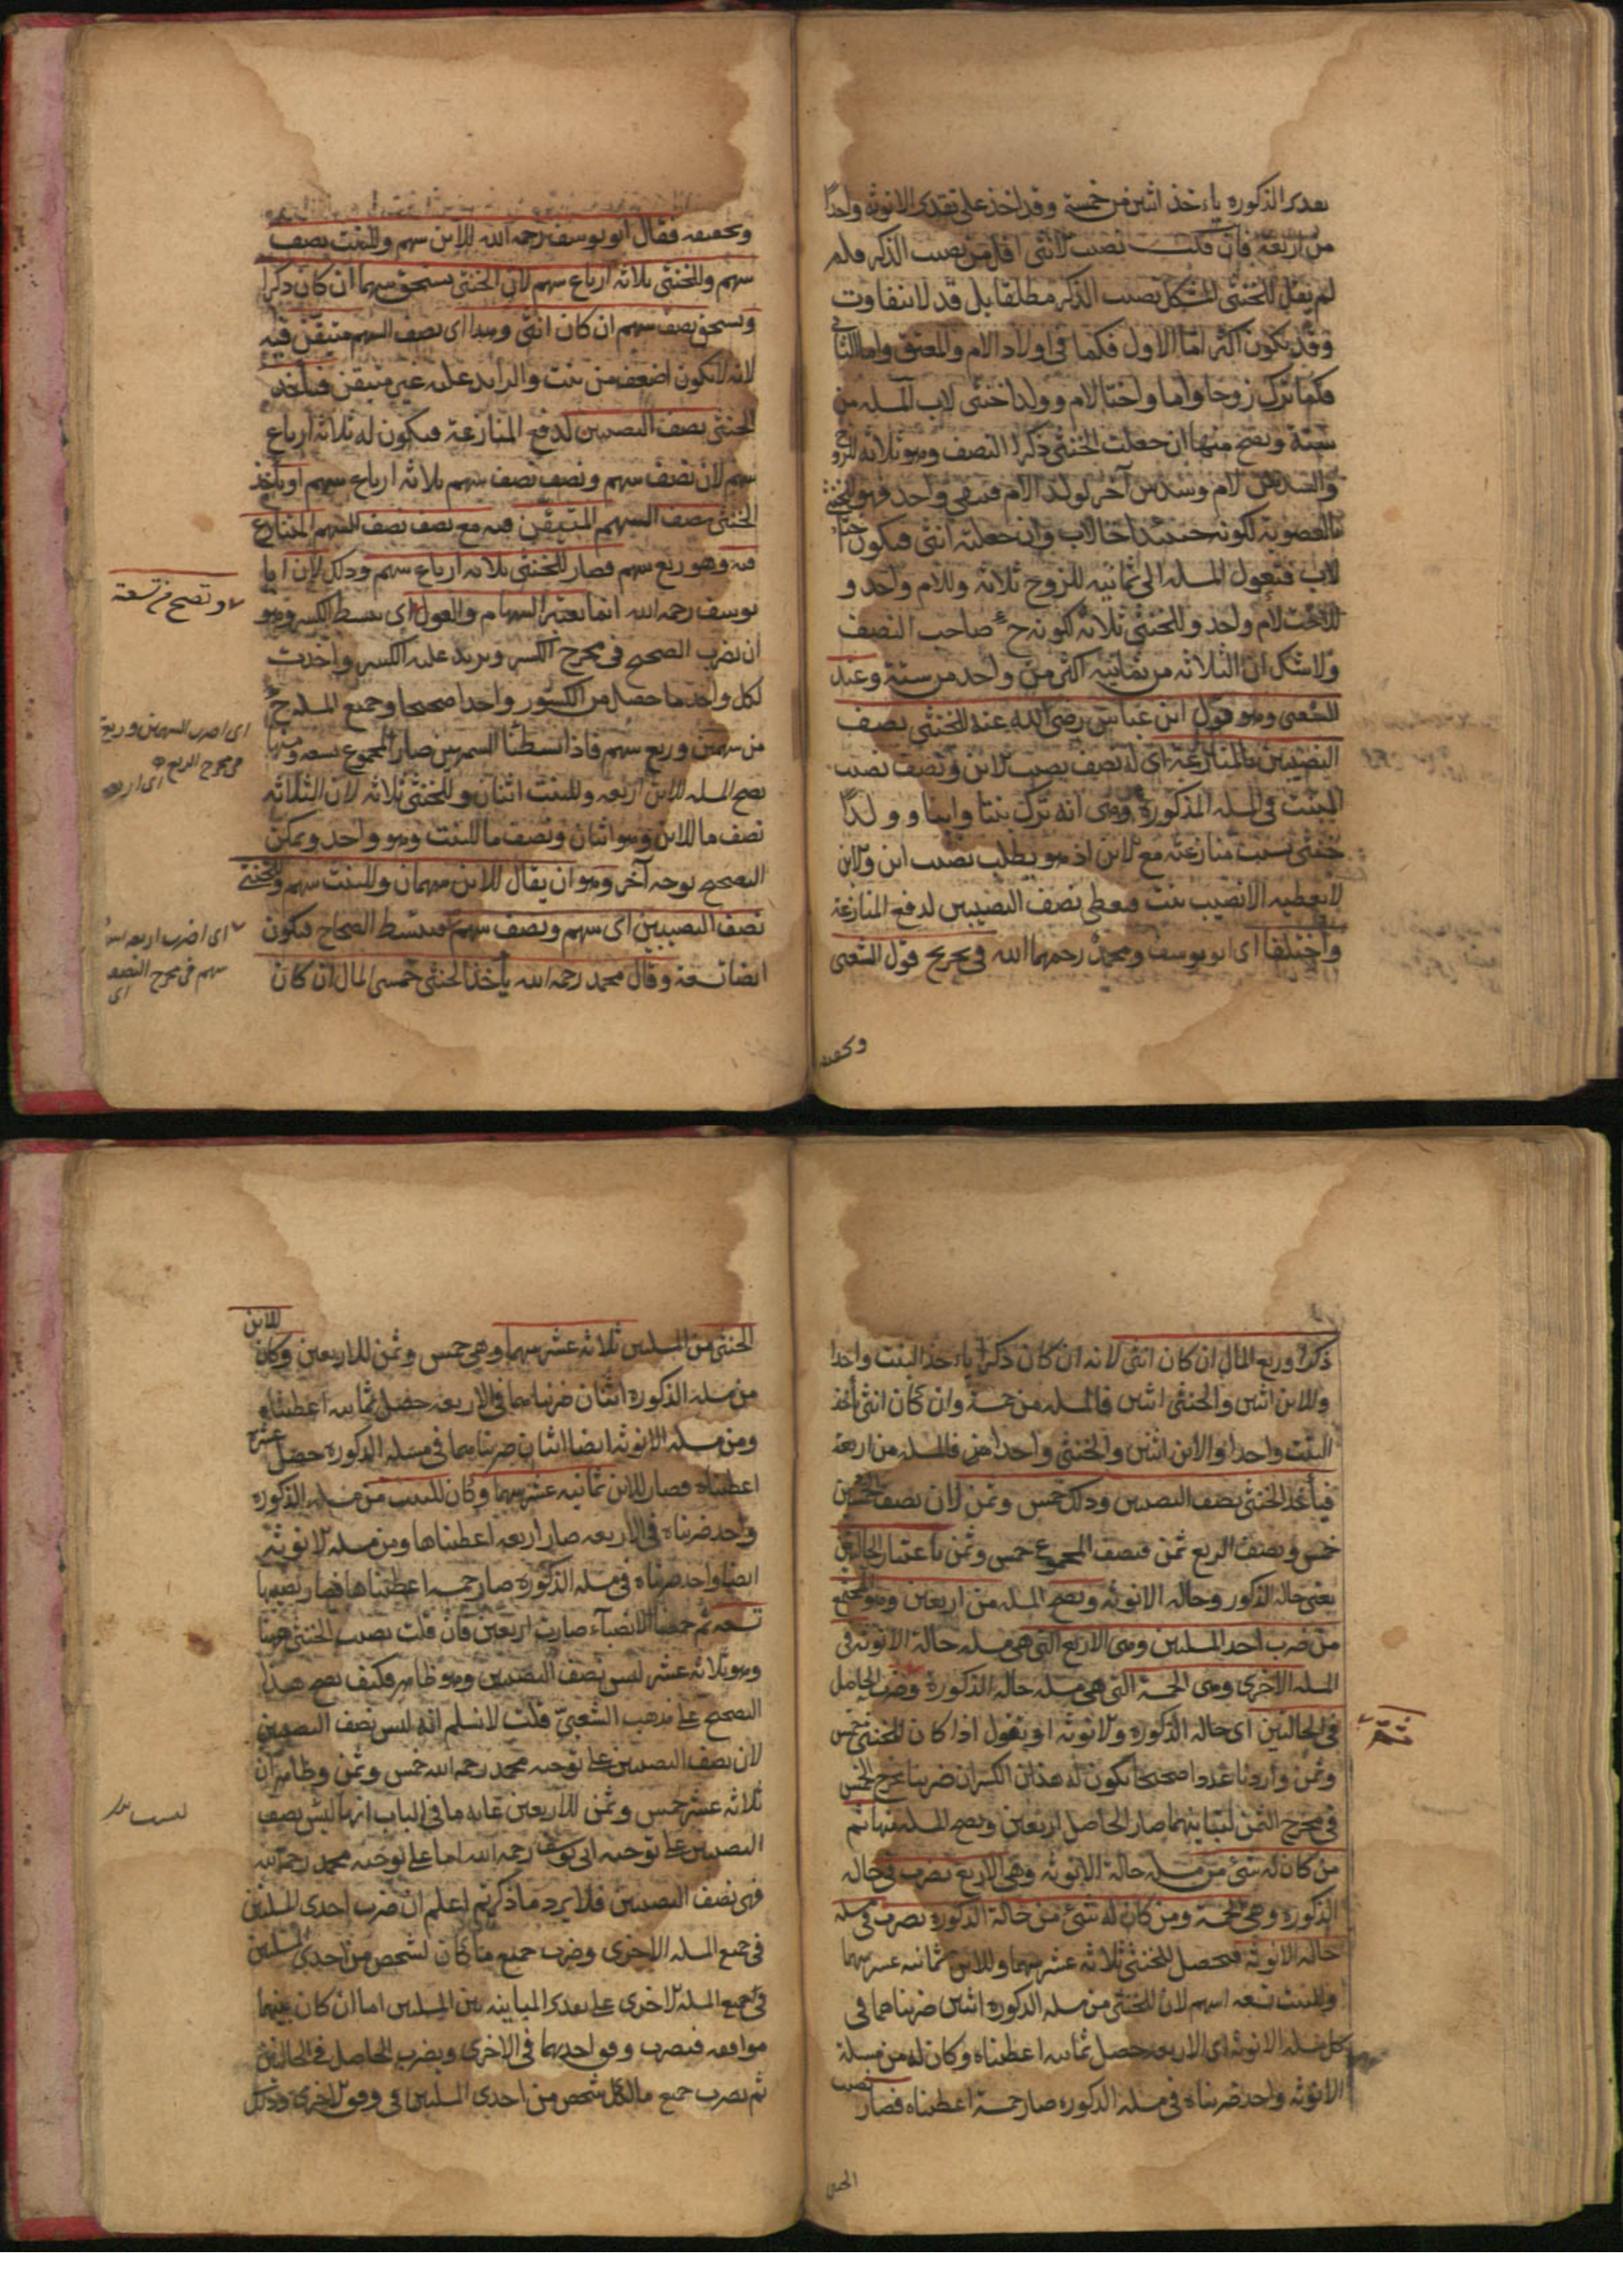 تقدير الذكورة ياءخذ اثنين من خمسة وقد اخذ على تقدير الانوثة واحدًا
من اربعة فان قلت نصيب الانثى اقل من نصيب الذكر فلم
لم يقل للخنثى المشكل نصيب الذكر مطلقا بل قد لا يتفاوت
وقد يكون اكثر اما الاول فكما فى اولاد الام والمعتق واما الثانى
فكما ترك زوجا واما واختا لام وولدا خنثى لاب المسلة من
ستة وتصح منها ان جعلت الخنثى ذكرا النصف وهو ثلاثة للزوج
والسدس للام وسدس آخر لولد الام فبقى واحد فهو للخنثى
بالعصوبة لكونه حينئذ اخا لاب وان جعلته انثى فيكون اختا
لاب فتعول المسلة الى ثمانية للزوج ثلاثة وللام واحد و
للاخت لام واحد وللخنثى ثلاثة لكونه ح صاحب النصف
ولا شك ان الثلاثة من ثمانية اكثر من واحد من ستة وعند
الشعبى وهو قول ابن عباس رضى الله عنه للخنثى نصف
النصيبين بالمنازعة اى له نصف نصيب الابن ونصف نصيب
البنت فى المسلة المذكورة وهى انه ترك بنتا وابنا وولدًا
خنثى بسبب منازعته مع الابن اذ هو يطلب نصيب ابن والابن
لا يعطيه الا نصيب بنت فيعطى نصف النصيبين لدفع المنازعة
واختلفا اى ابو يوسف ومحمد رحمهما الله فى تخريج قول الشعبى
وتحقيقه
وتحقيقه فقال ابو يوسف رحمه الله للابن سهم وللبنت نصف
سهم وللخنثى ثلاثة ارباع سهم لان الخنثى يستحق سهما ان كان ذكرا
ويستحق نصف سهم ان كان انثى وهذا اى نصف السهم متيقن فيه
لانه لا يكون اضعف من بنت والزايد عليه غير متيقن فياخذ
الخنثى نصف النصيبين لدفع المنازعة فيكون له ثلاثة ارباع
سهم لان نصف سهم ونصف نصف سهم ثلاثة ارباع سهم او ياخذ
الخنثى نصف السهم المتيقن فيه مع نصف نصف السهم المتنازع
فيه وهو ربع سهم فصار للخنثى ثلاثة ارباع سهم وذلك لان ابا
وتصح من تسعة
يوسف رحمه الله انما يعتبر السهام والعول اى يبسط الكسر وهو
ان يضرب الصحيح فى مخرج الكسر ويزيد عليه الكسر واخذت
لكل واحد ما حصل من الكسور واحدا صحيحا وجميع المسلة ح
من سهمين وربع سهم فاذا بسطنا السهمين صار المجموع تسعة ومنها
اى اضرب السهمين وربع
فى مخرج الربع اى اربعة
تصح المسلة للابن اربعة وللبنت اثنان وللخنثى ثلاثة لان الثلاثة
نصف ما للابن وهو اثنان ونصف ما للبنت وهو واحد ويمكن
التصحيح بوجه آخر وهو ان يقال للابن سهمان وللبنت سهم وللخنثى
نصف النصيبين اى سهم ونصف سهم فيبسط الصحاح فيكون
اى اضرب اربعة
سهم فى مخرج النصف
اى
ايضا تسعة وقال محمد رحمه الله يأخذ الخنثى خمسى المال ان كان
ذكرا وربع المال ان كان انثى لانه ان كان ذكرا ياءخذ البنت واحدا
وللابن اثنين والخنثى اثنين فالمسلة من خمسة وان كان انثى يأخذ
البنت واحدا والابن اثنين والخنثى واحدا فالمسلة من اربعة
فيأخذ الخنثى نصف النصيبين وذلك خمس وثمن لان نصف الخمسين
خمس ونصف الربع ثمن فنصف المجموع خمس وثمن باعتبار الحالتين
يعنى حالة الذكور وحالة الانوثة وتصح المسلة من اربعين وهو المجتمع
من ضرب احد المسلتين وهى الاربع التى هى مسلة حالة الانوثة فى
المسلة الاخرى وهى الخمسة التى هى مسلة حالة الذكورة وضرب الحاصل
فى الحالتين اى حالة الذكورة والانوثة او يقول اذا كان للخنثى خمس
وثمن واردنا عددا صحيحا يكون له هذان الكسران ضربنا مخرج الخمس
فى مخرج الثمن لتباينهما صار الحاصل اربعين وتصح المسلة منها ثم
من كان له شئ من مسلة حالة الانوثة وهى الاربع يضرب فى حالة
الذكورة وهى خمسة ومن كان له شئ من حالة الذكورة يضرب فى مسلة
حالة الانوثة فيحصل للخنثى ثلاثة عشر سهما وللابن ثمانية عشر سهما
وللبنت تسعة اسهم لان للخنثى من مسلة الذكورة اثنين ضربناهما فى
كل مسلة الانوثة اى الاربعة حصل ثمانية اعطيناه وكان له من مسلة
الانوثة واحد ضربناه فى مسلة الذكورة صار خمسة اعطيناه فصار نصيب
الخنثى
الخنثى من المسلتين ثلاثة عشر سهما وهى خمس وثمن للاربعين وكان للابن
من مسلة الذكورة اثنان ضربناهما فى الاربعة حصل ثمانية اعطيناه
ومن مسلة الانوثة ايضا اثنان ضربناهما فى مسلة الذكورة حصل عشرة
اعطيناه فصار للابن ثمانية عشر سهما وكان للبنت من مسلة الذكورة
واحد ضربناه فى الاربعة صار اربعة اعطيناها ومن مسلة الانوثة
ايضا واحد ضربناه فى مسلة الذكورة صار خمسة اعطيناها فصار نصيبها
تسعة ثم جمعنا الانصباء صارت اربعين فان قلت نصيب الخنثى هنا
وهو ثلاثة عشر ليس نصف النصيبين وهو ظاهر فكيف يصح هذا
التصحيح على مذهب الشعبىّ قلت لا نسلم انه ليس نصف النصيبين
لان نصف النصيبين على توجيه محمد رحمه الله خمس وثمن وظاهر ان
ثلاثة عشر خمس وثمن للاربعين غاية ما فى الباب انها ليس نصف
النصيبين على توجيه ابى يوسف رحمه الله اما على توجيه محمد رحمه الله
فهى نصف النصيبين فلا يرد ما ذكرتم اعلم ان ضرب احدى المسلتين
فى جميع المسلة الاخرى وضرب جميع ما كان لشخص من احدى المسلتين
فى جميع المسلة الاخرى على تقدير المباينة بين المسلتين اما ان كان بينهما
موافقة فيضرب وفق احديهما فى الاخرى ويضرب الحاصل فى الحالتين
ثم يضرب جميع ما لكل شخص من احدى المسلتين فى وفق الاخرى وذلك